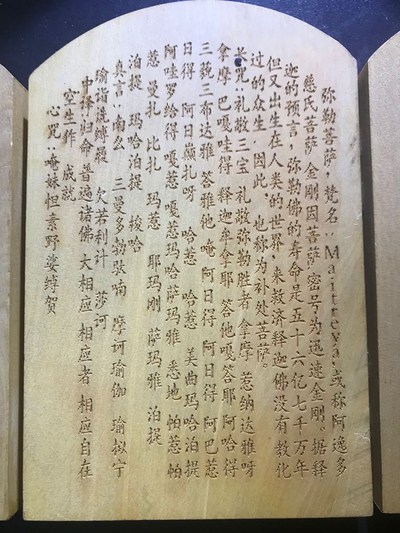 弥勒菩萨,梵名:Maitreya,或称阿逸多
慈氏菩萨 金刚因菩萨 密号为迅速金刚。据释
迦的预言,弥勒佛的寿命是五十六亿七千万年
但又出生在人类的世界,来救济释迦佛没有教化
过的众生。因此 也称为补处菩萨。
长咒:礼敬三宝 礼敬弥勒胜者 拿摩 惹纳达雅呀
拿摩 巴嘎哇得 释迦牟拿耶 答他嘎答耶 阿哈得
三藐三布达雅 答雅他 唵 阿日得 阿日得 阿巴惹
日得 阿日巅扎呀 哈惹 哈惹 美曲玛哈泊提
阿哇罗给得 嘎惹 嘎惹玛哈萨玛雅 悉地 帕惹 帕
惹 曼扎 比扎 玛惹 耶玛刚 萨玛雅 泊提
泊提 玛哈泊提 梭哈
真言:南么 三曼多勃驮喃 摩诃瑜伽 瑜拟宁
瑜诣诜缚履 欠若利计 莎诃
中译:归命 普遍诸佛 大相应 相应者 相应自在
空生作 成就
心咒:唵妹怛素野娑缚贺